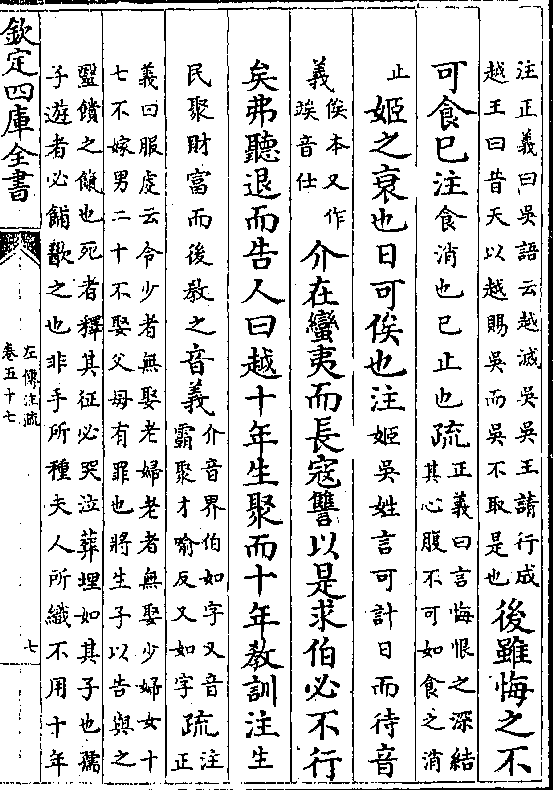 注正義曰吳語云越滅吳吳王請行成
越王曰昔天以越賜吳而吳不取是也
後雖悔之不
可食已注食消也已止也疏
正義曰言悔恨之深結
其心腹不可如食之消
止
姬之衰也日可俟也注姬吳姓言可計日而待音
義
俟本又作
竢音仕
介在蠻夷而長寇讐以是求伯必不行
矣弗聽退而告人曰越十年生聚而十年教訓注生
民聚財富而後教之音義
介音界伯如字又音
霸聚才喻反又如字
疏
注
正
義曰服虔云令少者無娶老婦老者無娶少婦女十
七不嫁男二十不娶父母有罪也將生子以告與之
毉饋之餼也死者釋其征必哭泣葬埋如其子也孺
子遊者必餔歠之也非手所種夫人所織不用十年
欽定四庫全書
左傳注疏
卷五十七
七